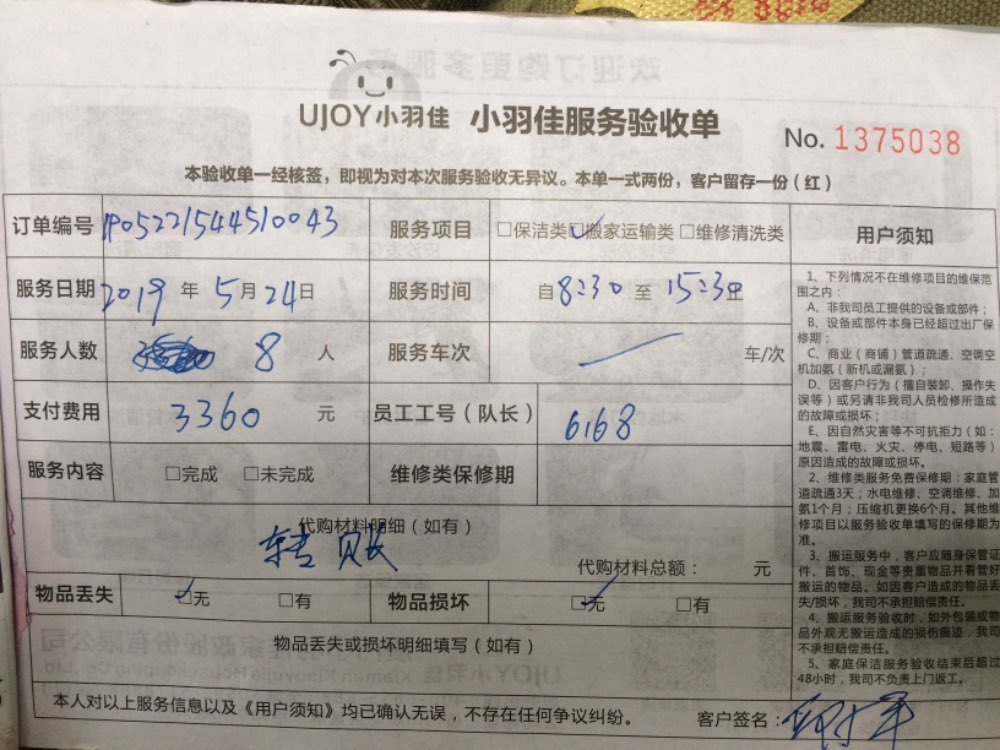 UJOY小羽佳 小羽佳服务验收单
No. 1375038
本验收单一经核签，即视为对本次服务验收无异议。本单一式两份，客户留存一份（红）
订单编号 服务项目 □保洁类 ☑搬家运输类 □维修清洗类
服务日期 2019 年 5 月 24 日 服务时间 自 8:30 至 15:30
服务人数 8 人 服务车次 车/次
支付费用 3360 元 员工工号（队长） 6168
服务内容 □完成 □未完成 维修类保修期
代购材料明细（如有）
转账
代购材料总额： 元
物品丢失 ☑无 □有 物品损坏 ☑无 □有
物品丢失或损坏明细填写（如有）
本人对以上服务信息以及《用户须知》均已确认无误，不存在任何争议纠纷。 客户签名：
用户须知
1、下列情况不在维修项目的维保范
围之内：
A、非我司员工提供的设备或部件；
B、设备或部件本身已经超过出厂保
修期；
C、商业（商铺）管道疏通、空调空
机加氨（新机或漏氨）；
D、因客户行为（擅自装卸、操作失
误等）或另请非我司人员检修所造成
的故障或损坏；
E、因自然灾害等不可抗拒力（如：
地震、雷电、火灾、停电、短路等）
原因造成的故障或损坏。
2、维修类服务免费保修期：家庭管
道疏通3天；水电维修、空调维修、加
氨1个月；压缩机更换6个月。其他维
修项目以服务验收单填写的保修期为
准。
3、搬运服务中，客户应随身保管证
件、首饰、现金等贵重物品并看管好
搬运的物品。如因客户造成的物品丢
失/损坏，我司不承担赔偿责任。
4、搬运服务验收时，如外包装或物
品外观无搬运造成的损伤痕迹，我司
不承担赔偿责任。
5、家庭保洁服务验收结束后超过
48小时，我司不负责上门返工。